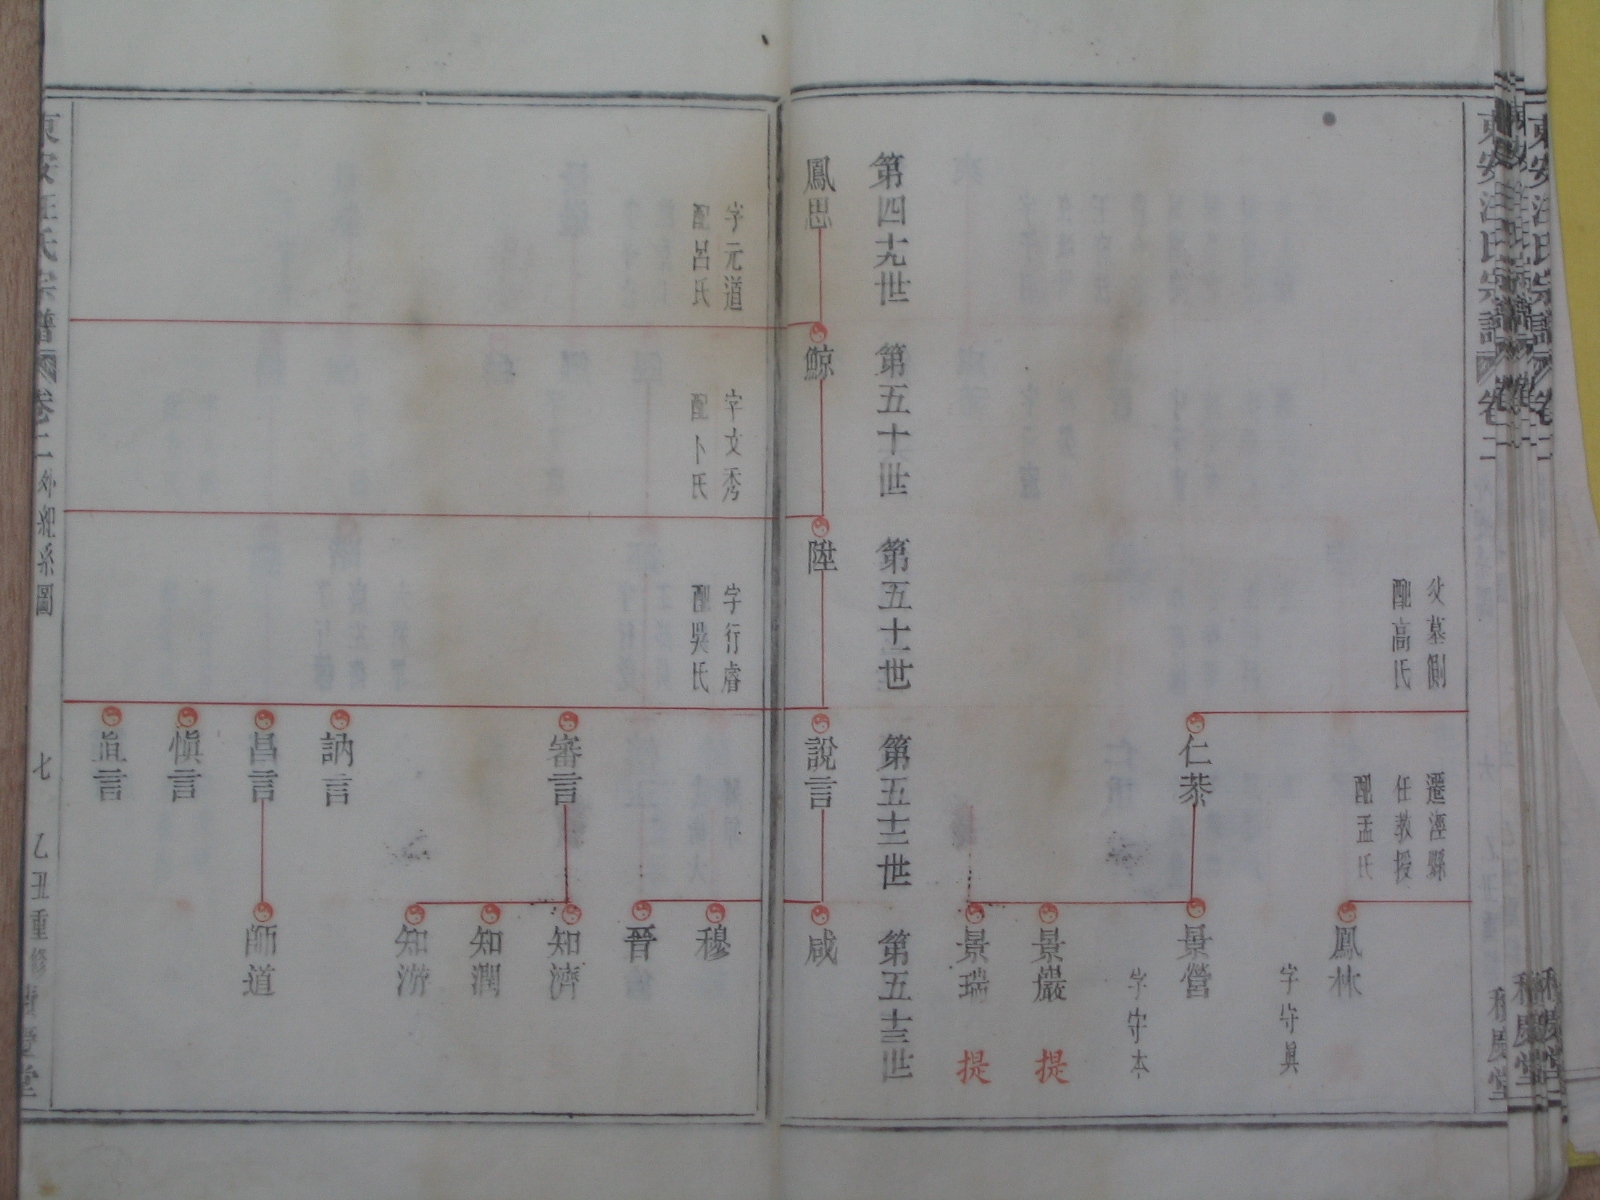 東安汪氏宗譜 卷二
和慶堂
父墓側
配高氏
遷涇縣
任教授
配孟氏
鳳林
字守眞
仁恭
景營
字守本
景巖 提
景瑞 提
第四十九世
第五十世
第五十一世
第五十二世
第五十三世
鳳思
鯨
陞
說言
咸
字元道
配呂氏
字文秀
配卜氏
字行睿
配吳氏
穆
晉
審言
知濟
知潤
知游
訥言
昌言
師道
愼言
直言
東安汪氏宗譜 卷二 外紀系圖 七 乙丑重修 慶堂